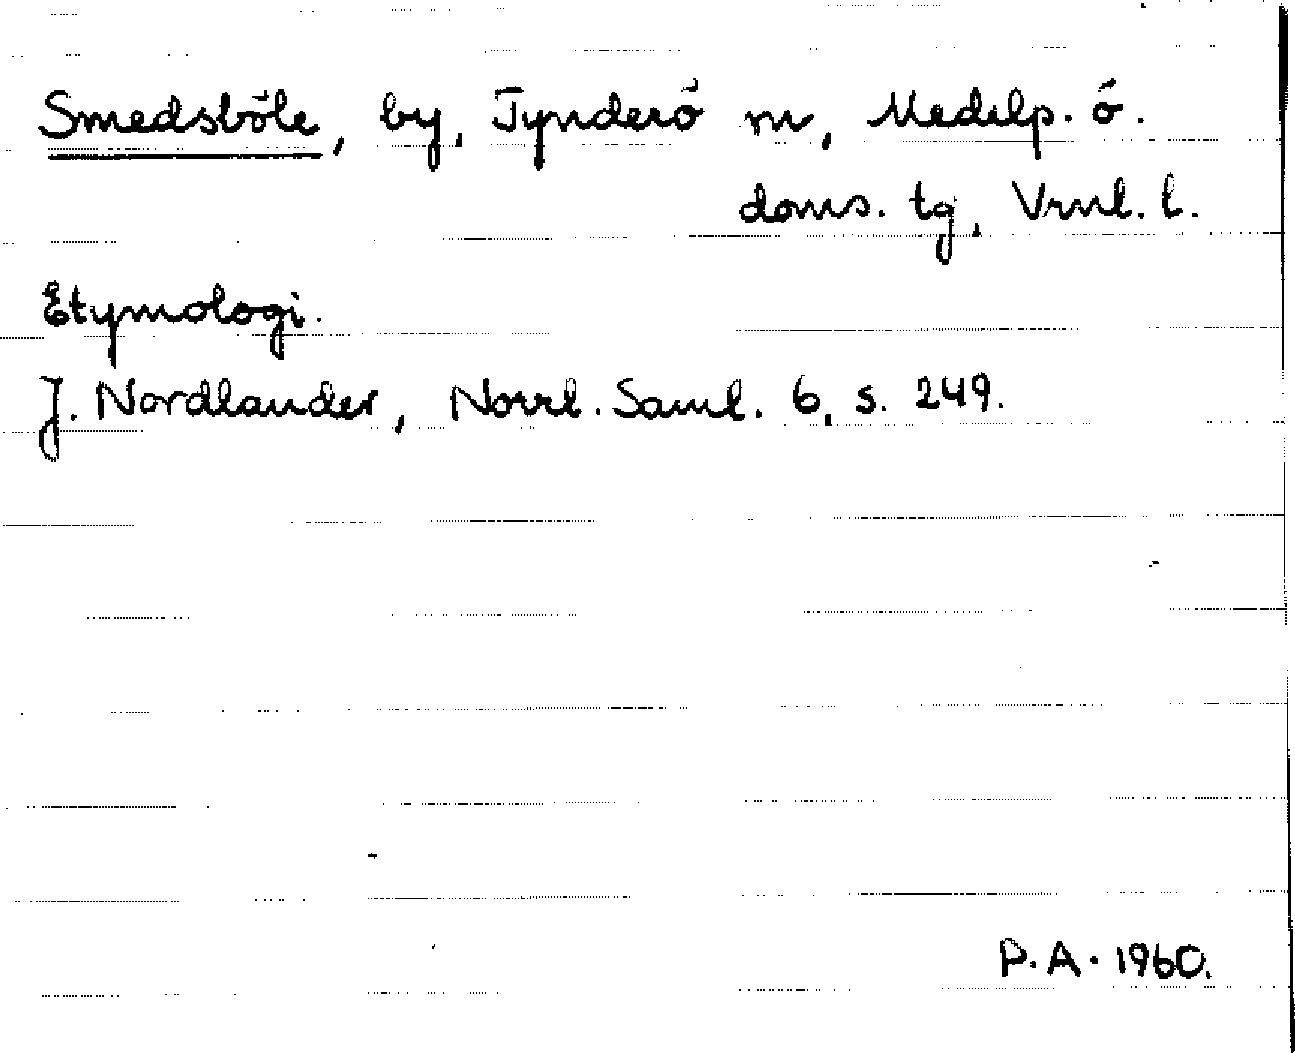 Smedsböle, by, Tynderö sn, Medelp. ö.
doms. tg, Vrnl. l.
Etymologi.
J. Nordlander, Norrl. Saml. 6, s. 249.
P.A. 1960.